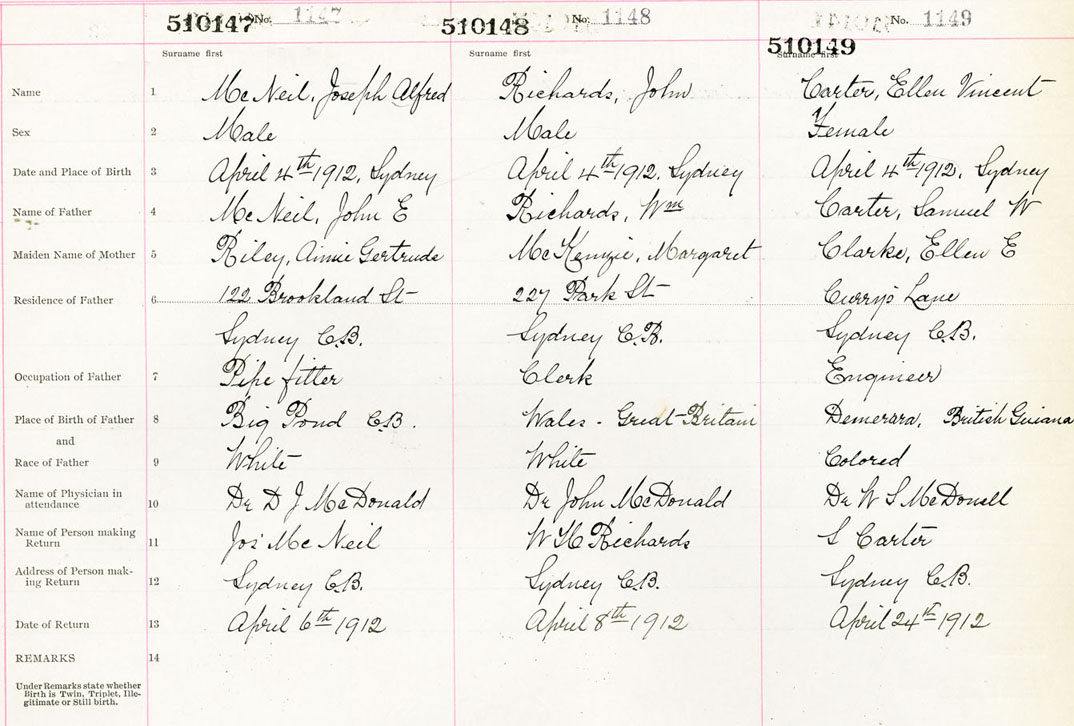 510147 No. 1147 510148 No. 1148 510149 No. 1149
Surname first Surname first Surname first
Name 1 McNeil, Joseph Alfred Richards, John Carter, Ellen Vincent
Sex 2 Male Male Female
Date and Place of Birth 3 April 4th 1912, Sydney April 4th 1912, Sydney April 4th 1912, Sydney
Name of Father 4 McNeil, John E Richards, Wm Carter, Samuel W
Maiden Name of Mother 5 Riley, Annie Gertrude McKenzie, Margaret Clarke, Ellen E
Residence of Father 6 122 Brookland St 227 Park St Curry's Lane
Sydney C.B. Sydney C.B. Sydney C.B.
Occupation of Father 7 Pipe fitter Clerk Engineer
Place of Birth of Father 8 Big Pond C.B. Wales - Great Britain Demerara, British Guiana
and
Race of Father 9 White White Colored
Name of Physician in
attendance 10 Dr D J McDonald Dr John McDonald Dr W S McDonell
Name of Person making
Return 11 Jos McNeil W H Richards S Carter
Address of Person mak-
ing Return 12 Sydney C.B. Sydney C.B. Sydney C.B.
Date of Return 13 April 6th 1912 April 8th 1912 April 24th 1912
REMARKS 14
Under Remarks state whether
Birth is Twin, Triplet, Ille-
gitimate or Still birth.